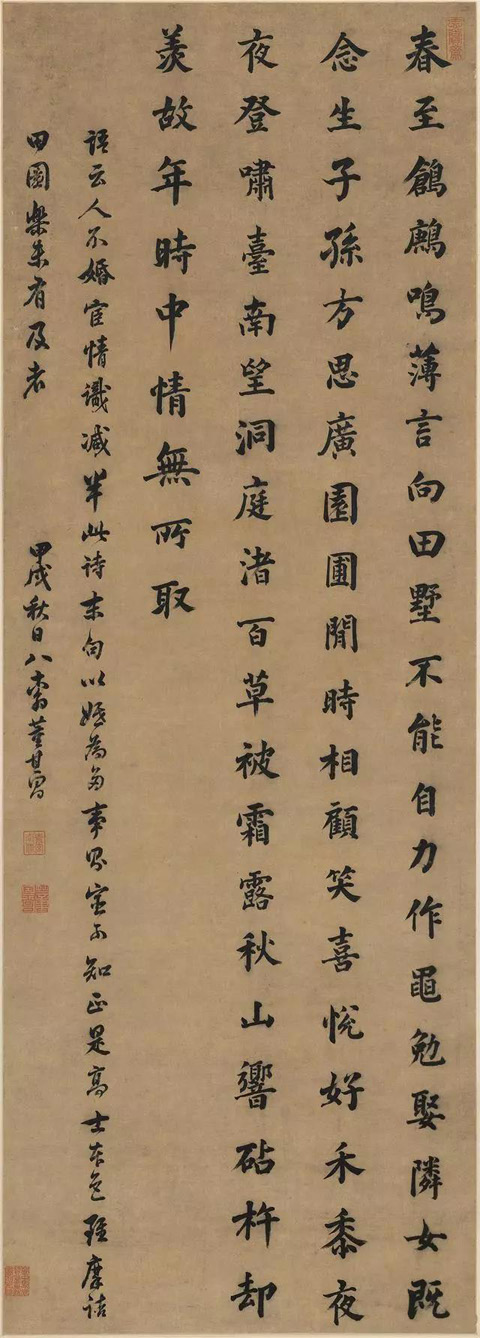 春至鶬鶊鳴薄言向田墅不能自力作黽勉娶隣女既
念生子孫方思廣園圃閒時相顧笑喜悅好禾黍夜
夜登嘯臺南望洞庭渚百草被霜露秋山響砧杵却
羨故年時中情無所取
語云人不婚宦情識減半此詩末句以婚為多事則宦可知正是高士本色 摩詰
田園樂未有及者
甲戌秋日八十翁董其昌